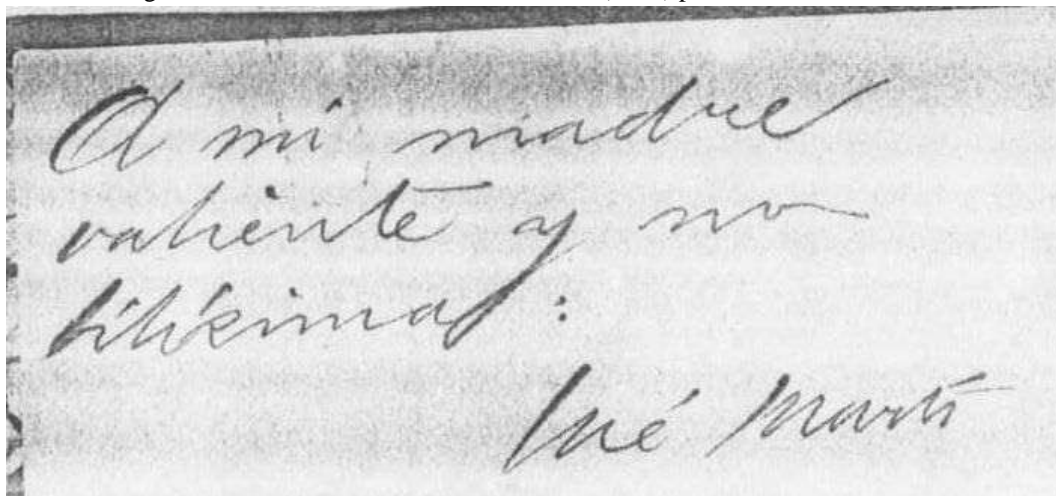 A mi madre
valiente y no
bilísima:
José Martí